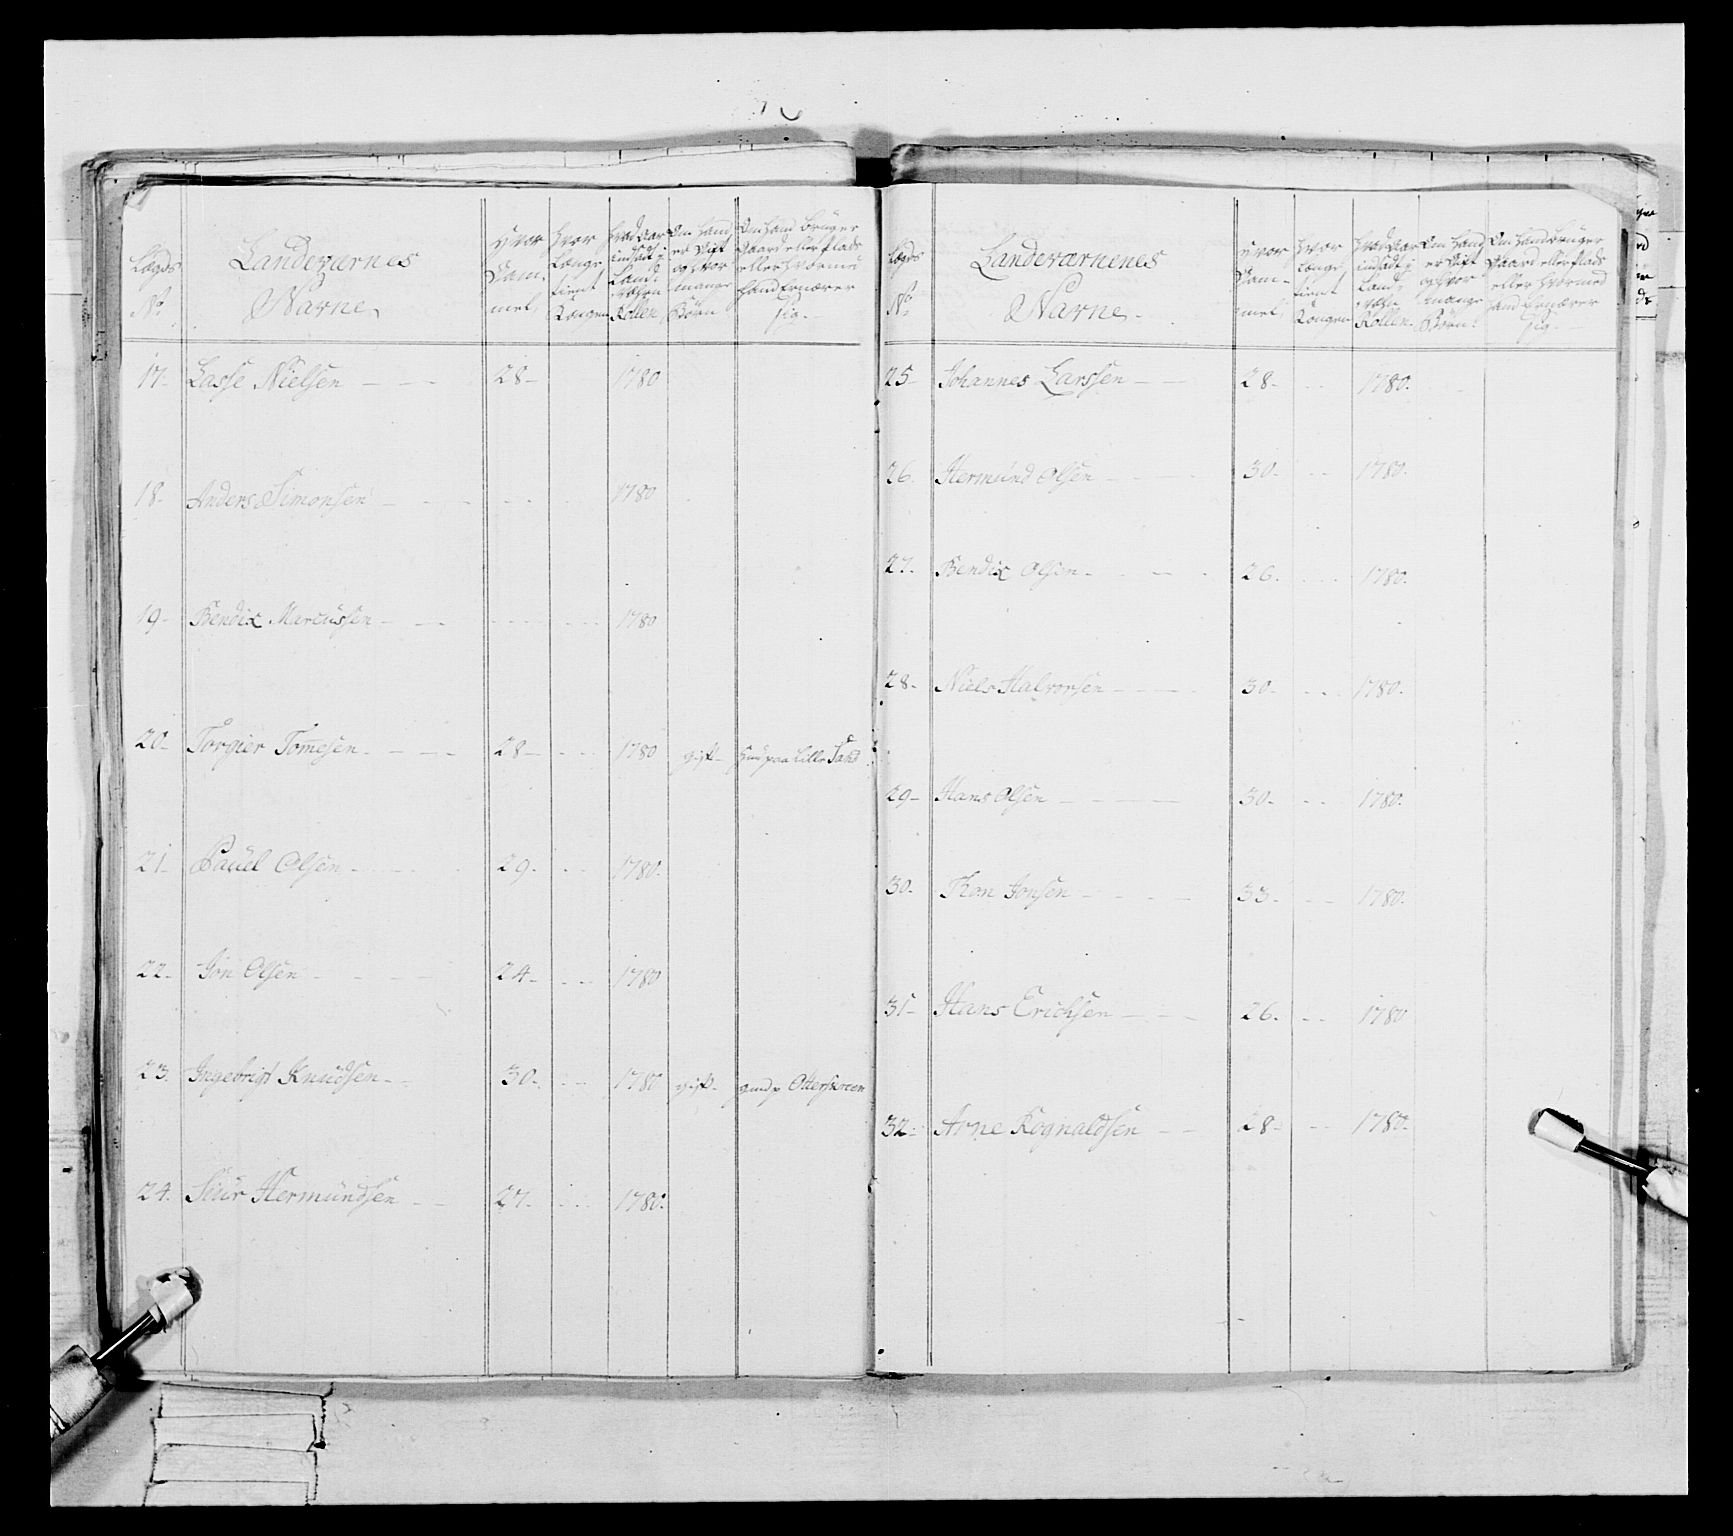 Lægds No
Landeværnes Navne,
Hvor Gam- mel,
Hvor Længe tient Kongen
Hvad Aar indsadt i Land- væhrn Rollen
Om Hand er Gift og hvor mange Børn
Om Hand bruger Gaard eller Plads eller hvormed hand Ernærer sig.
17- Lasse Nielsen - - - 28- 1780
18- Anders Simonsen - - - 1780
19- Bendix Marcussen - - - 1780
20- Torgier Tomesen - - - 28- - - 1780 gift- Huus paa Lille Sand
21- Pauel Olsen - - - 29. - - 1780.
22- Jon Olsen - - - 24- - - 1780
23. Ingebrigt Knudsen - - 30- - - 1780 gift- Otterskreen
24. Siur Hermundsen - - 27- - - 1780.
Lægds No
Landeværnenes Navne.
Hvor Gam- mel,
Hvor Længe tient Kongen
Hvad Aar indsadt i Land- væhr Rollen.
Om Hand er Gift og hvor mange Børn.
Om Hand bruger Gaard eller Plads eller hvormed hand Ernærer sig.-
25- Johannes Larssen - - 28- - - 1780.
26. Hermund Olsen - - - 30- - - 1780.
27. Bendix Olsen - - - 26. - - 1780.
28- Niels Halvorsen - - - 30- - - 1780.
29- Hans Olsen - - - - 30- - - 1780.
30- Thon Jonsen - - - - 33- - - 1780.
31- Hans Erichsen - - - 26. - - 1780
32- Arne Rognaldsen - - 28- - - 1780.